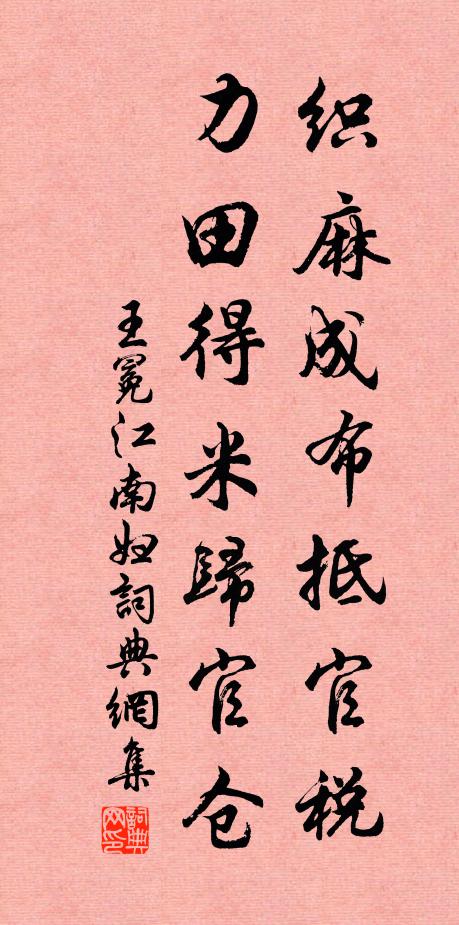 织麻成布抵官税
力田得米歸官仓
王冕江南妇詞典網集
詞典网印